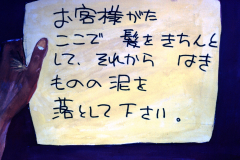 お客様がた
ここで 髪をきちんと
して、それから はき
ものの泥を
落として下さい。